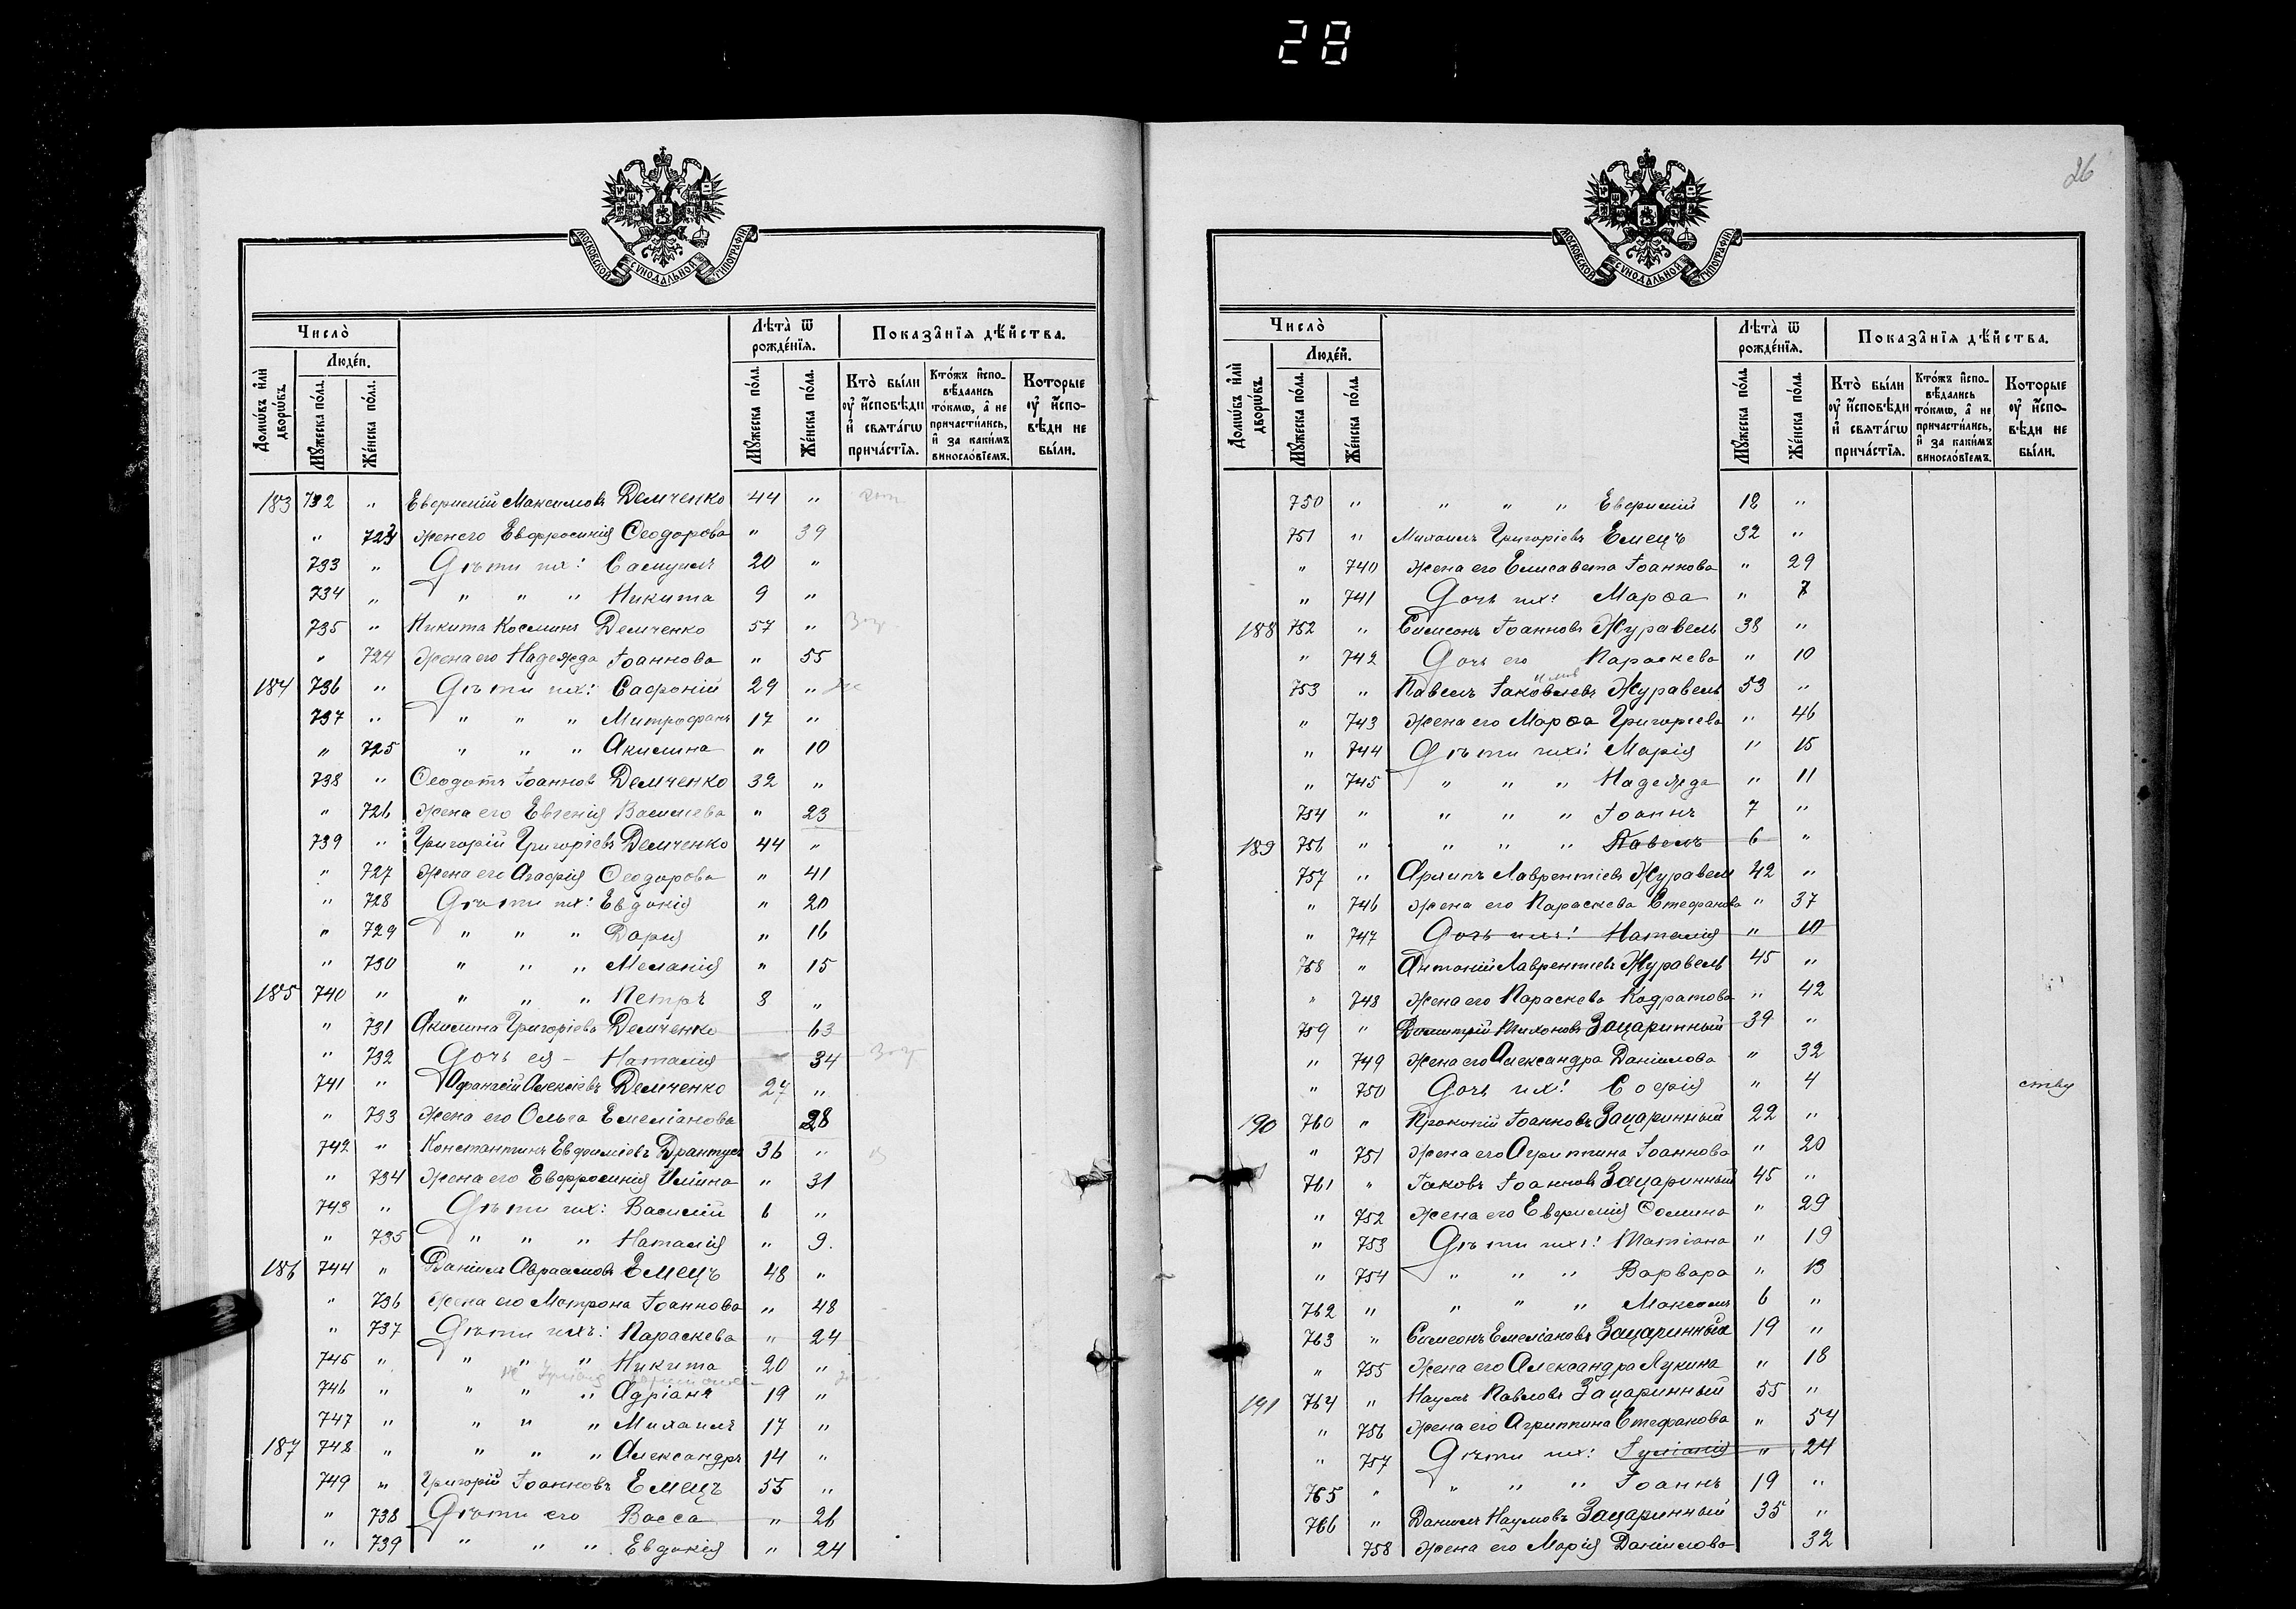 28
МОСКОВСКОЙ СѴНОДАЛЬНОЙ ТИПОГРАФІИ
Число̀
Лѣта̀ ѿ рождéнїѧ.
Показа̑нїѧ дѣ́йства.
Домѡ́въ и҆лѝ дворѡ́въ.
Людéй.
Мꙋ́жеска по́ла.
Жéнска по́ла.
Мꙋ́жеска по́ла.
Жéнска по́ла.
Кто̀ бы́ли ᲂу҆ и҆́сповѣди и҆ свѧта́гѡ прича́стїѧ.
Кто́жъ и҆спо-вѣ́дались то́кмѡ, а҆ не причасти́лись, и҆ за каки́мъ винослóвїемъ.
Которые ᲂу҆ и҆́спо-вѣди не бы́ли.
183 732 " Евфимій Максимовъ Демченко 44 "
" 723 Жена его Евфросинія Ѳеодорова " 39
733 " Дѣти их: Самуилъ 20 "
734 " " " " Никита 9 "
735 " Никита Косминъ Демченко 57 "
" 724 Жена его Надежда Іоаннова " 55
184 736 " Дѣти их: Сафоній 29 "
737 " " " " Митрофанъ 17 "
" 725 " " " Акилина " 10
738 " Ѳеодотъ Іоаннов Демченко 32 "
" 726 Жена его Евгенія Василиева " 23
739 " Григорій Григоріевъ Демченко 44 "
" 727 Жена его Агафія Ѳеодорова " 41
" 728 Дѣти их: Евдокія " 20
" 729 " " " Дарія " 16
" 730 " " " Меланія " 15
185 740 " " " " Петръ 8 "
" 731 Акилина Григоріева Демченко 63
" 732 Дочь ея - Наталія 34
741 " Афанасій Алексіевъ Демченко 27 "
" 733 Жена его Ольга Емеліанова 28
742 " Константинъ Евфиміевъ 36 "
" 734 Жена его Евфросинія Иліина " 31
743 " Дѣти их: Василій 6 "
" 735 " " " Наталія " 9.
186 744 " Даніилъ Авраамовъ Емецъ 48 "
" 736 Жена его Матрона Іоаннова " 48
" 737 Дѣти ихъ: Параскева " 24
745 " " " " Никита 20 "
746 " " " " Адріанъ 19 "
747 " " " " Михаилъ 17 "
187 748 " " " " Александръ 14 "
749 " Григорій Іоанновъ Емецъ 55 "
" 738 Дѣти его Васса " 26
" 739 " " " Евдокія " 24
26
МОСКОВСКОЙ СѴНОДАЛЬНОЙ ТИПОГРАФІИ
Число̀
Лѣта̀ ѿ рождéнїѧ.
Показа̑нїѧ дѣ́йства.
Домѡ́въ и҆лѝ дворѡ́въ.
Людéй.
Мꙋ́жеска по́ла.
Жéнска по́ла.
Мꙋ́жеска по́ла.
Жéнска по́ла.
Кто̀ бы́ли ᲂу҆ и҆́сповѣди и҆ свѧта́гѡ прича́стїѧ.
Кто́жъ и҆спо-вѣ́дались то́кмѡ, а҆ не причасти́лись, и҆ за каки́мъ винослóвїемъ.
Которые ᲂу҆ и҆́спо-вѣди не бы́ли.
750 " " " " Евфимій 12 "
751 " Михаилъ Григоріевъ Емецъ 32 "
" 740 Жена его Елисавета Іоаннова " 29
" 741 Дочь их: Марѳа " 7
188 752 " Симеонъ Іоанновъ Журавель 38 "
" 742 Дочь его Параскева " 10
753 " Павелъ Іаковлевъ Журавель 53 "
" 743 Жена его Марѳа Григоріева " 46
" 744 Дѣти ихъ: Марія " 15
" 745 " " " Надежда " 11
754 " " " " Іоаннъ 7 "
189 756 " " " " Павелъ 6 "
757 " Архипъ Лаврентіевъ Журавель 42 "
" 746 Жена его Параскева Стефанова " 37
" 747 Дочь ихъ: Наталія " 10
758 " Антоній Лаврентіевъ Журавель 45 "
" 748 Жена его Параскева Кодратова " 42
759 " Димитрій Тихоновъ Зацаринный 39 "
" 749 Жена его Александра Даніилова " 32
" 750 Дочь их: Софія " 4 ству
190 760 " Прокопій Іоанновъ Зацаринный 22 "
" 751 Жена его Агриппина Іоаннова " 20
761 " Іаковъ Іоанновъ Зацаринный 45 "
" 752 Жена его Евфимія Ѳомина " 29
" 753 Дѣти ихъ: Татіана " 19
" 754 " " " Варвара " 13
762 " " " " Максимъ 6 "
763 " Симеонъ Емеліановъ Зацаринный 19 "
" 755 Жена его Александра Лукина " 18
191 764 " Наумъ Павловъ Зацаринный 55 "
" 756 Жена его Агриппина Стефанова " 54
" 757 Дѣти их: Іуліанія " 24
765 " " " " Іоаннъ 19 "
766 " Даніилъ Наумовъ Зацаринный 35 "
758 Жена его Марія Даніилова 32